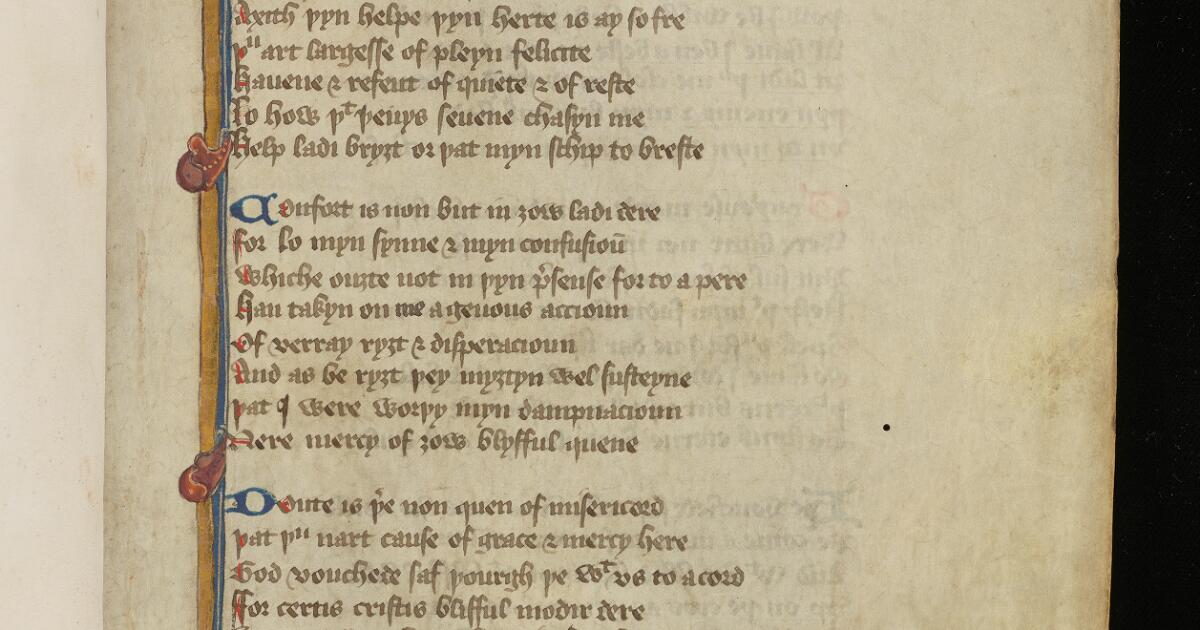 Axith þyn helpe þyn herte is ay so fre
þᵘ art largesse of pleyn felicite
Hauene & refeut of quiete & of reste
Lo how þᵗ þeuys seuene chasyn me
Help ladi bryȝt or þat myn schip to breste
Confort is non but in ȝow ladi dere
For lo myn synne & myn confusioū
Whiche ouȝte not in þyn p̄sense for to a pere
Han takyn on me a geuous accioun
Of verray ryȝt & disperacioun
And as be ryȝt þey myȝtyn wel susteyne
þat I were worþy myn dampnacioun
Nere mercy of ȝow blysful quene
Doute is þ̄e non quen of misericord
þat þᵘ nart cause of grace & mercy here
God vouchede saf þourgh þe wᵗ vs to acord
For certis cristis blisful modir dere